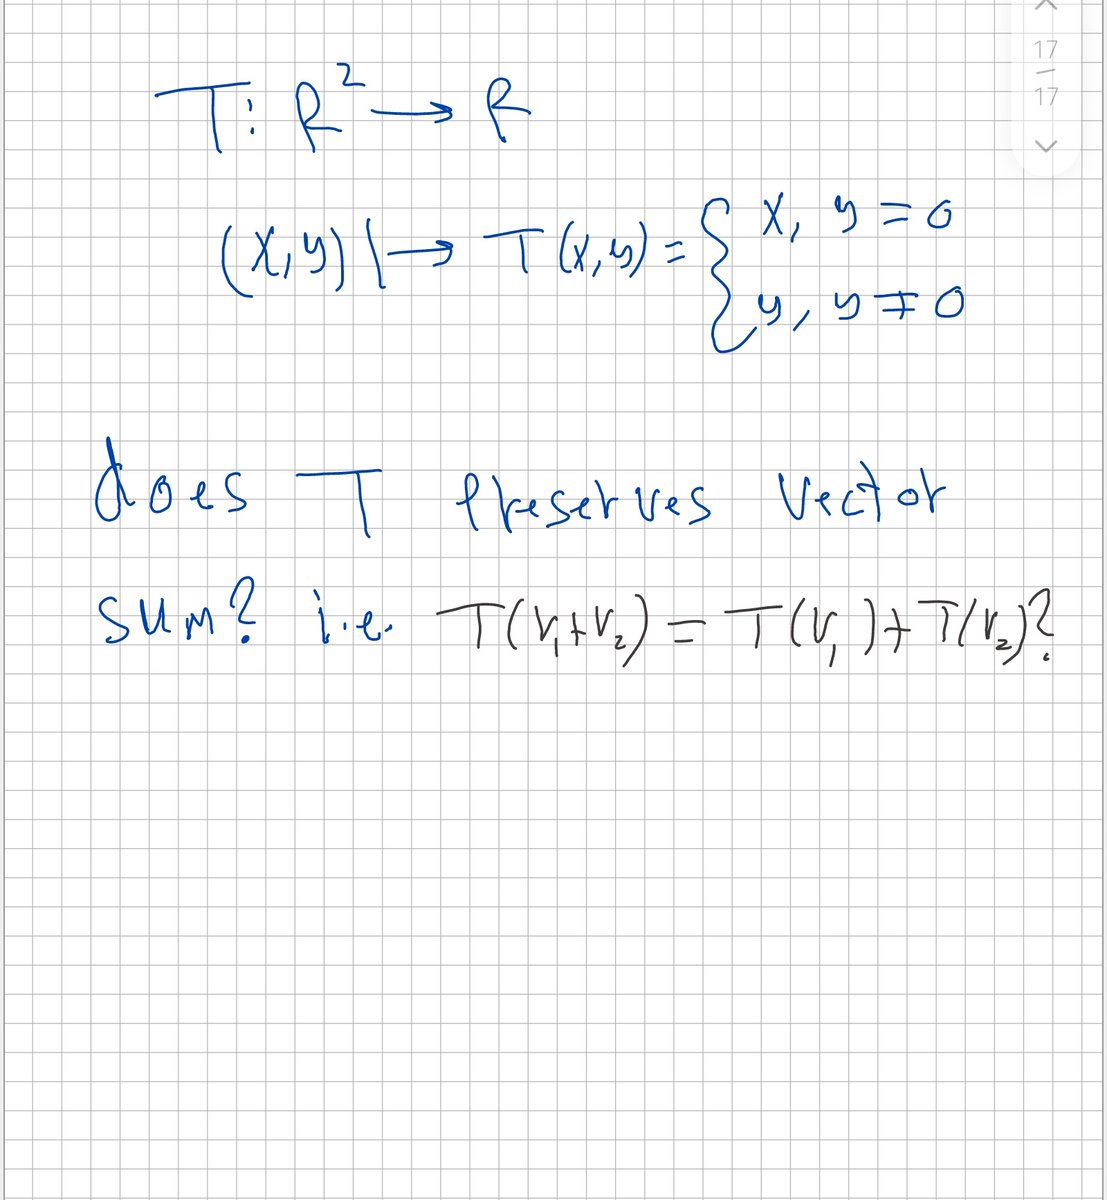 17
17
T: R² → R
(x,y) ↦ T(x,y) = { x, y = 0
y, y ≠ 0
does T Preserves Vector
sum? i.e. T(V₁+V₂) = T(V₁)+T(V₂)?